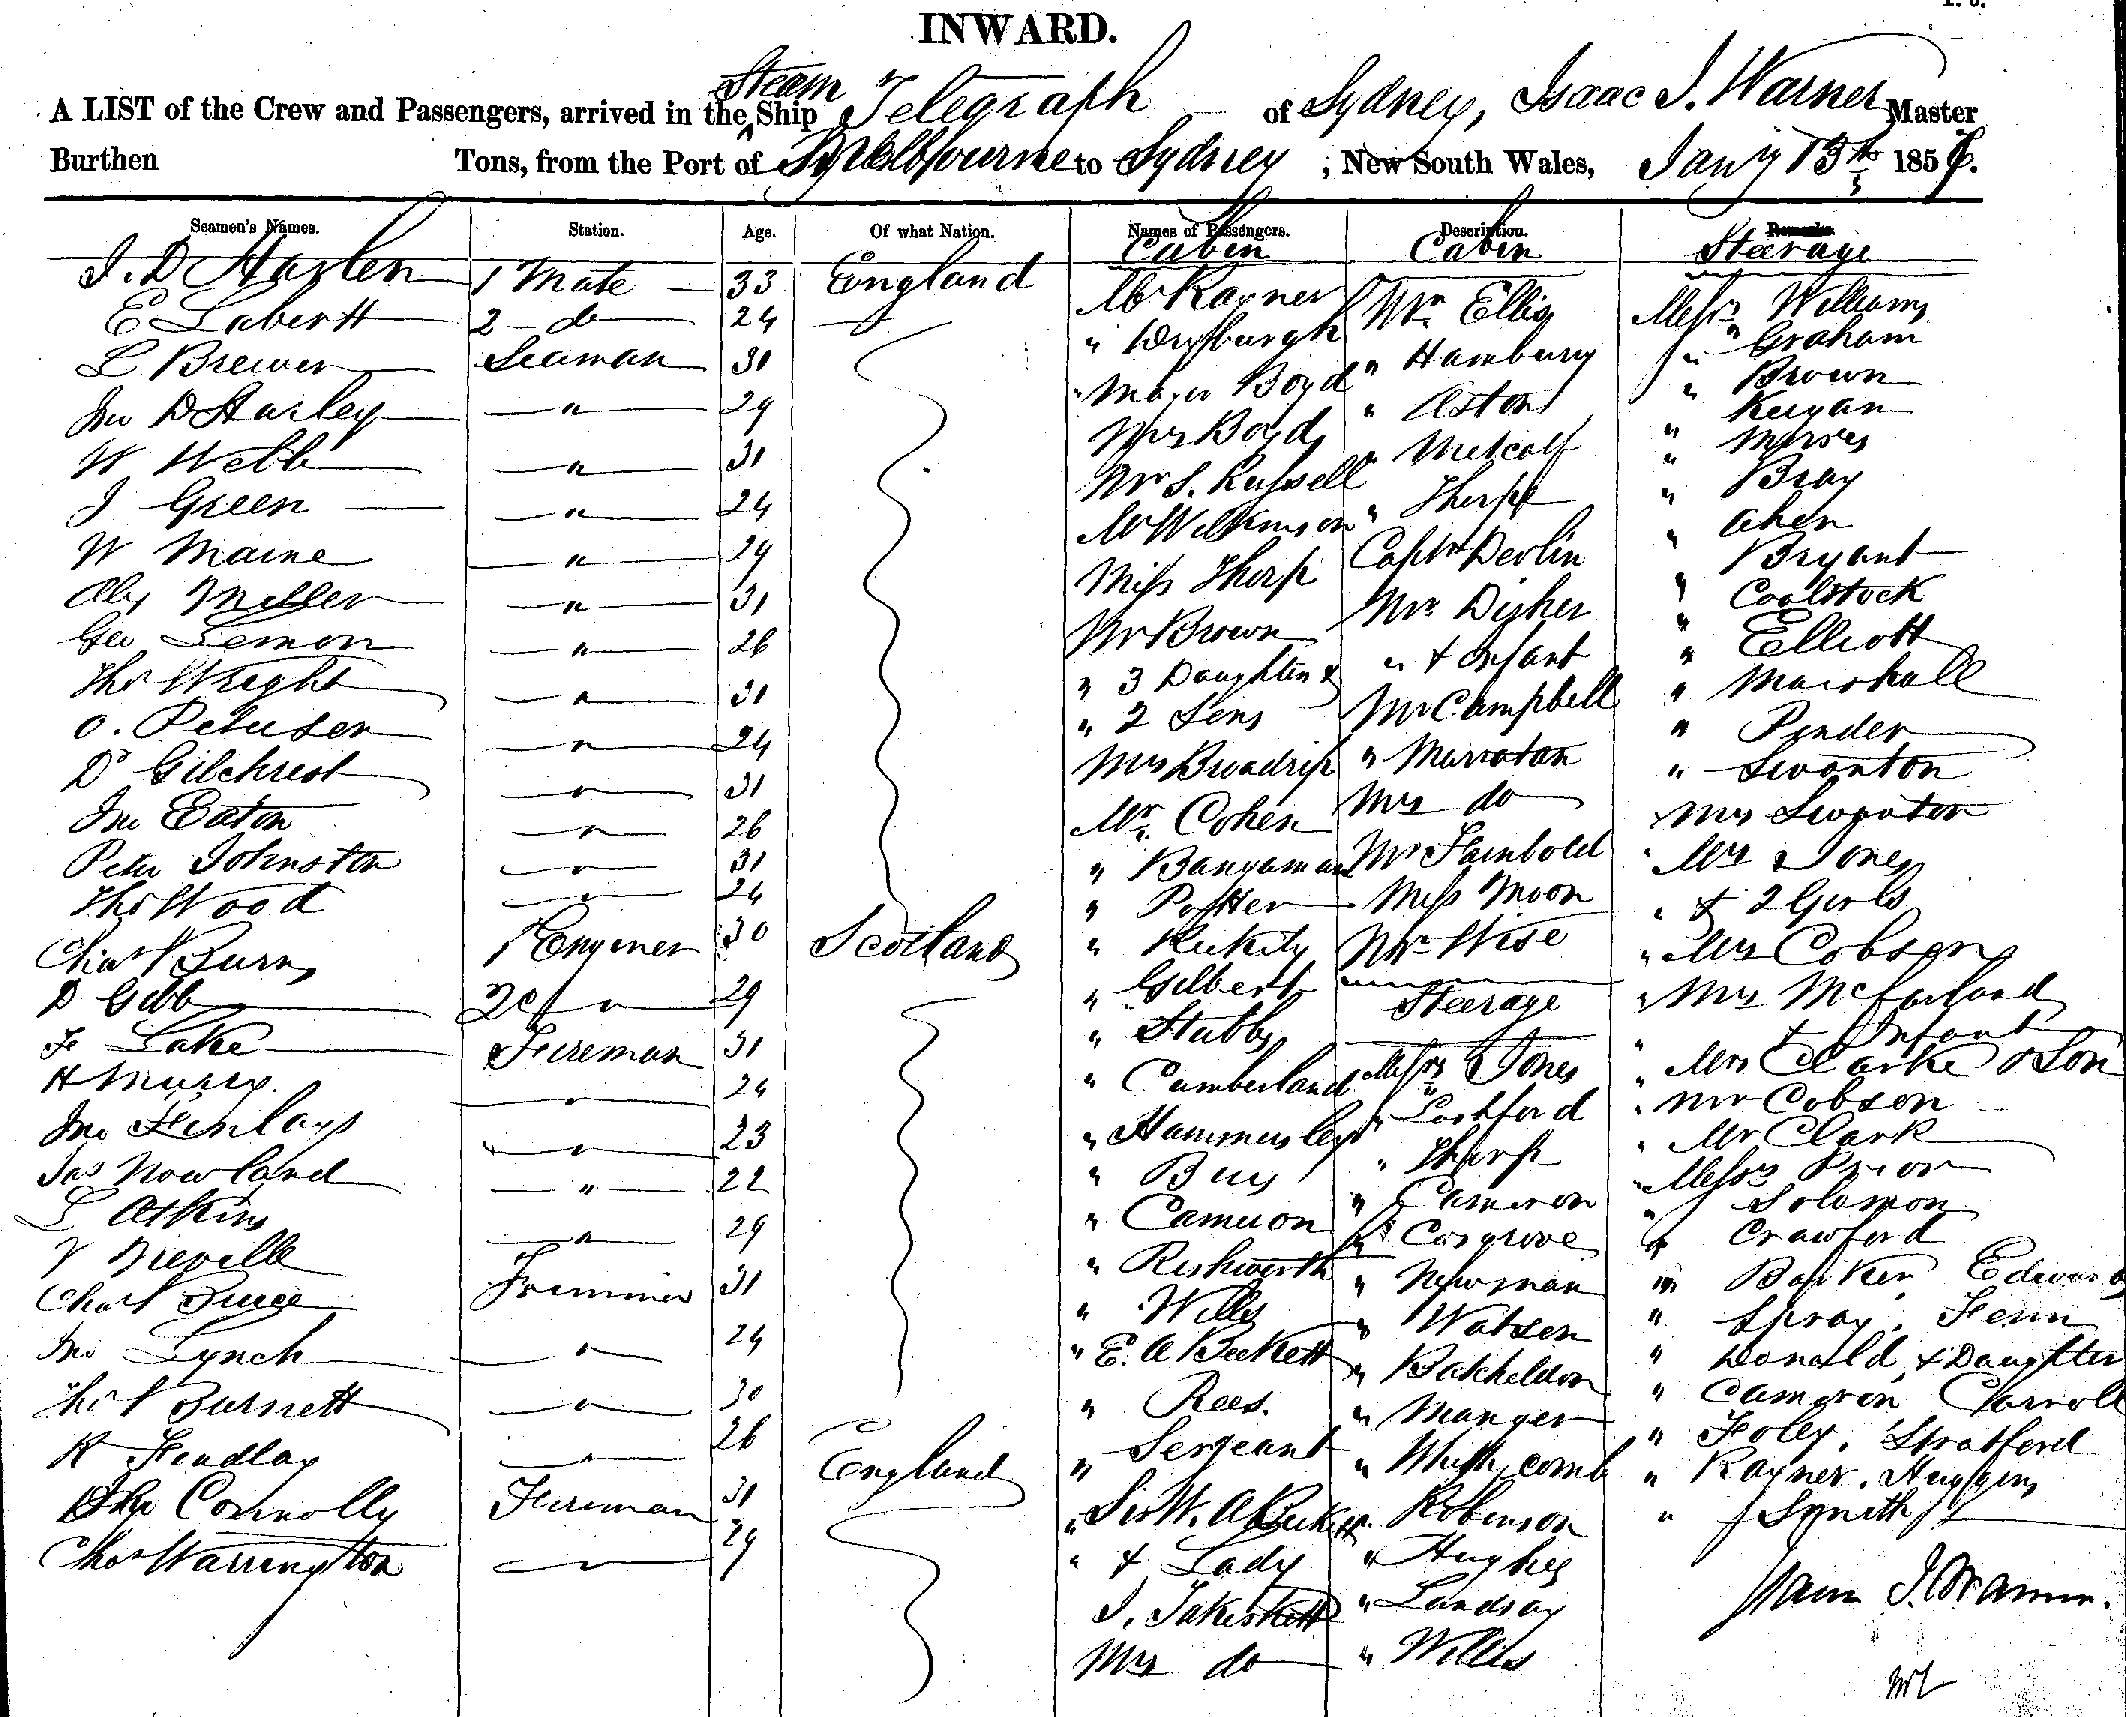 INWARD.
A LIST of the Crew and Passengers, arrived in the Steam Ship Telegraph of Sydney, Isaac J. Warner Master
Burthen Tons, from the Port of Melbourne to Sydney, New South Wales, Jany 13th 185
Seamen's Names. Station. Age. Of what Nation. Names of Passengers. Description. Remarks.
Cabin Cabin Steerage
J. D 1 Mate 33 England Mr Rayner Mr Ellis Messrs Williams
E 2 do 24 " " Hambury " Graham
L Brewer Seaman 31 Major Boyd " Aston " Brown
Jno D Harley " 29 Mrs Boyd " Metcalf " Keegan
W Webb " 31 Mr S. Russell " Thorpe "
J Green " 24 Mr Wilkinson Captn Devlin " Bray
W Maine " 29 Miss Thorp Mrs Disher " Aher
Alex Miller " 31 Mr Brown " & Infant " Bryant
Geo Lemon " 26 " 3 Daughters & Mr Campbell " Coolstock
Thos Wright " 31 " 2 Sons " " Elliott
O. Petersen " 24 Mrs Broadrip Mrs do " Marshall
D Gilchrist " 31 Mr. Cohen Mr " Pinder
Jno Eaton " 26 " Miss Moon " Swanton
Peter Johnston " 31 " Potter Mr Wise Mrs Swanton
Thos Wood " 24 " Steerage Mrs Jones
Chas Burns 1 Engineer 30 Scotland " Gilbert Messrs Jones " & 2 Girls
D Gibb 2d " 29 " Stubbs " " Mrs Cobson
F Lake Fireman 31 " Cumberland " Thorp " Mrs McFarland
H " 24 " Hammersley " Cameron " & Infant
Jno Finlays " 23 " " Cosgrove " Mrs Clarke & Son
Jas Nowland " 22 " Cameron " Newman " Mr Cobson
L Atkins " 29 " Rishworth " Watson " Mr Clark
Neville Trimmer 31 " Wills " Batcheldor " Messrs Prior
Chas " E. A Beckett " Manger " Solomon
Jno Lynch " 24 " Rees. " " Crawford
Thos Burnett " 30 " Sergeant " Robinson " Barker, Edwards
R Findlay " 26 England " Sir W. A Beckett " Hughes " Spray, Fenn
Connolly Fireman 31 " & Lady " Lindsay " Donald, & Daughter
Chas Warrington 29 J. " Willis " Cameron, Carroll
Mrs do " Foley, Stratford
" Rayner, Huggins
" Smith
Isaac J. Warner.